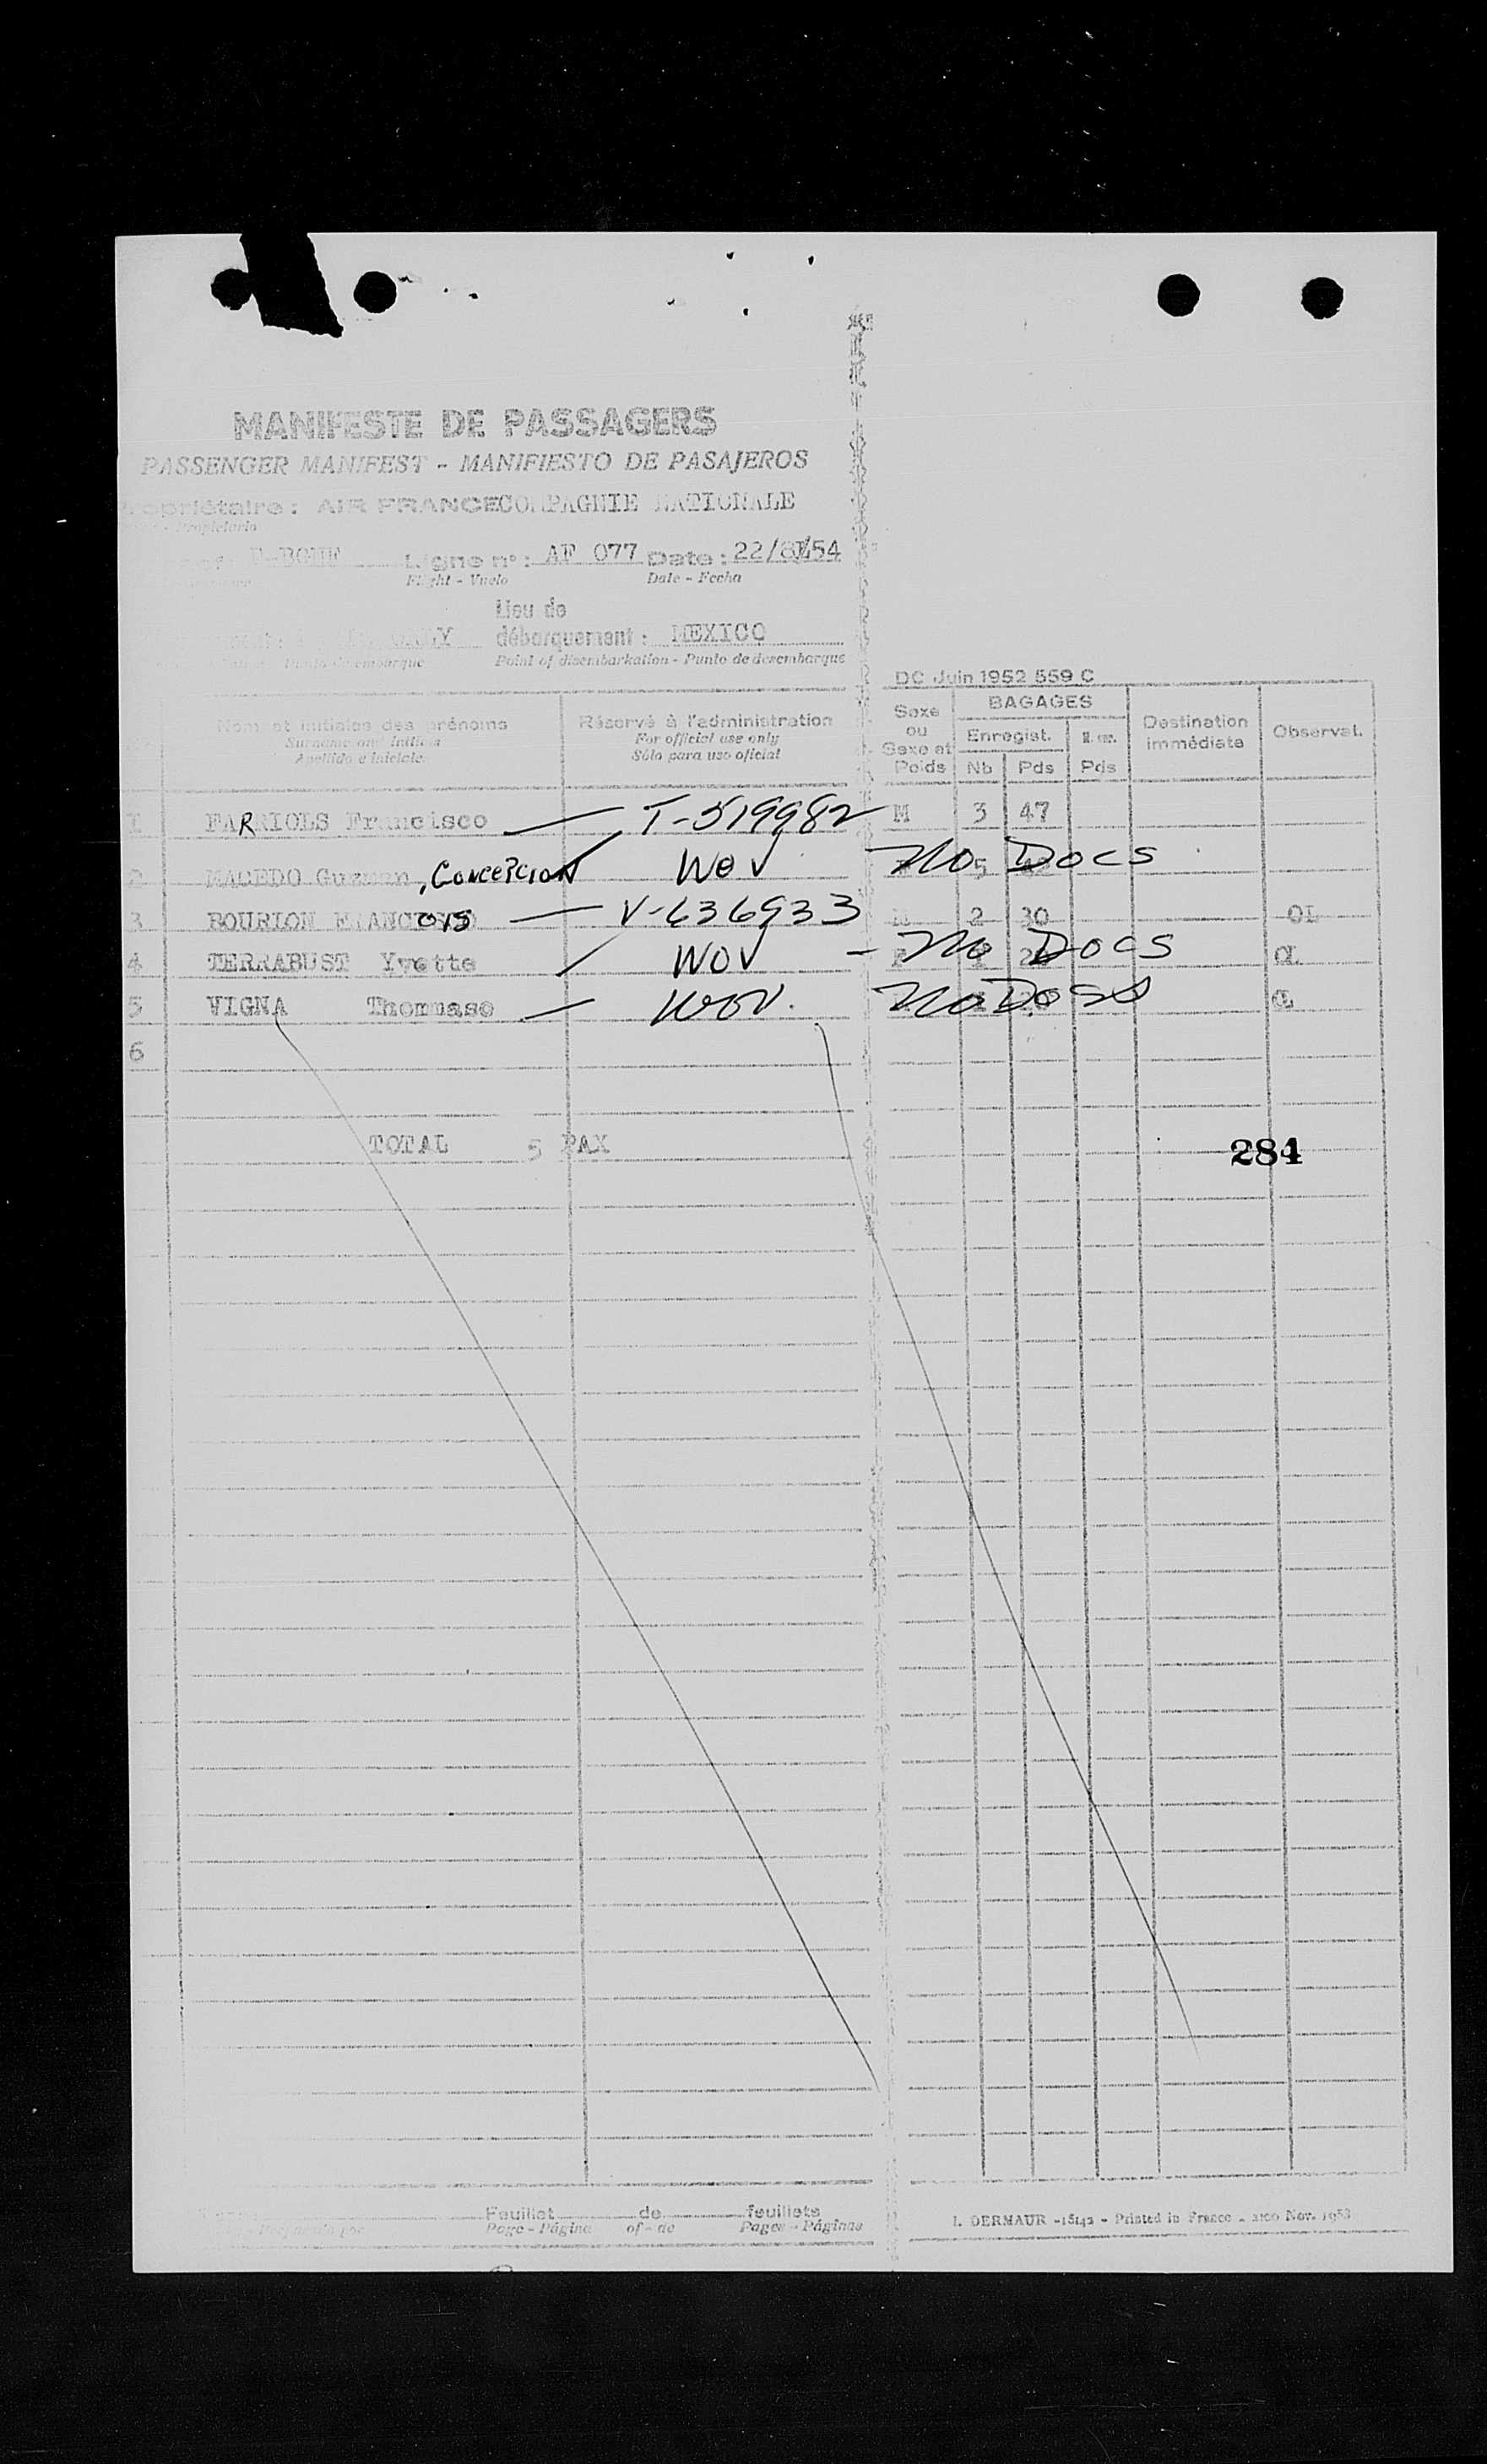 MANIFESTE DE PASSAGERS
PASSENGER MANIFEST - MANIFIESTO DE PASAJEROS
opriétaire : AIR FRANCE COMPAGNIE NATIONALE
- Propietario
Ligne n° : AF 077 Date : 22/8/54
Flight - Vuelo Date - Fecha
Lieu de
débarquement : MEXICO
Punto de embarque Point of disembarkation - Punto de desembarque
DC Juin 1952 559 C
Nom et initiales des prénoms Réservé à l'administration Sexe ou Sexe et Poids BAGAGES Destination immédiate Observat.
Surname and initials For official use only Enregist.
Apellido e iniciales Sólo para uso oficial Nb Pds Pds
1 FARRIOLS Francisco T-519982 M 3 47
2 MACEDO Guzman, CONCEPCION WOV No Docs 5
3 BOURION FRANCOIS V-636933 2 30 OL
4 TERRABUST Yvette WOV - No Docs OL
5 VIGNA Thommaso WOV. No Docs OL
6
TOTAL 5 PAX
284
Feuillet de feuillets
Page - Página of - de Pages - Páginas
I. DERMAUR - 16142 - Printed in France - 2100 Nov. 1953